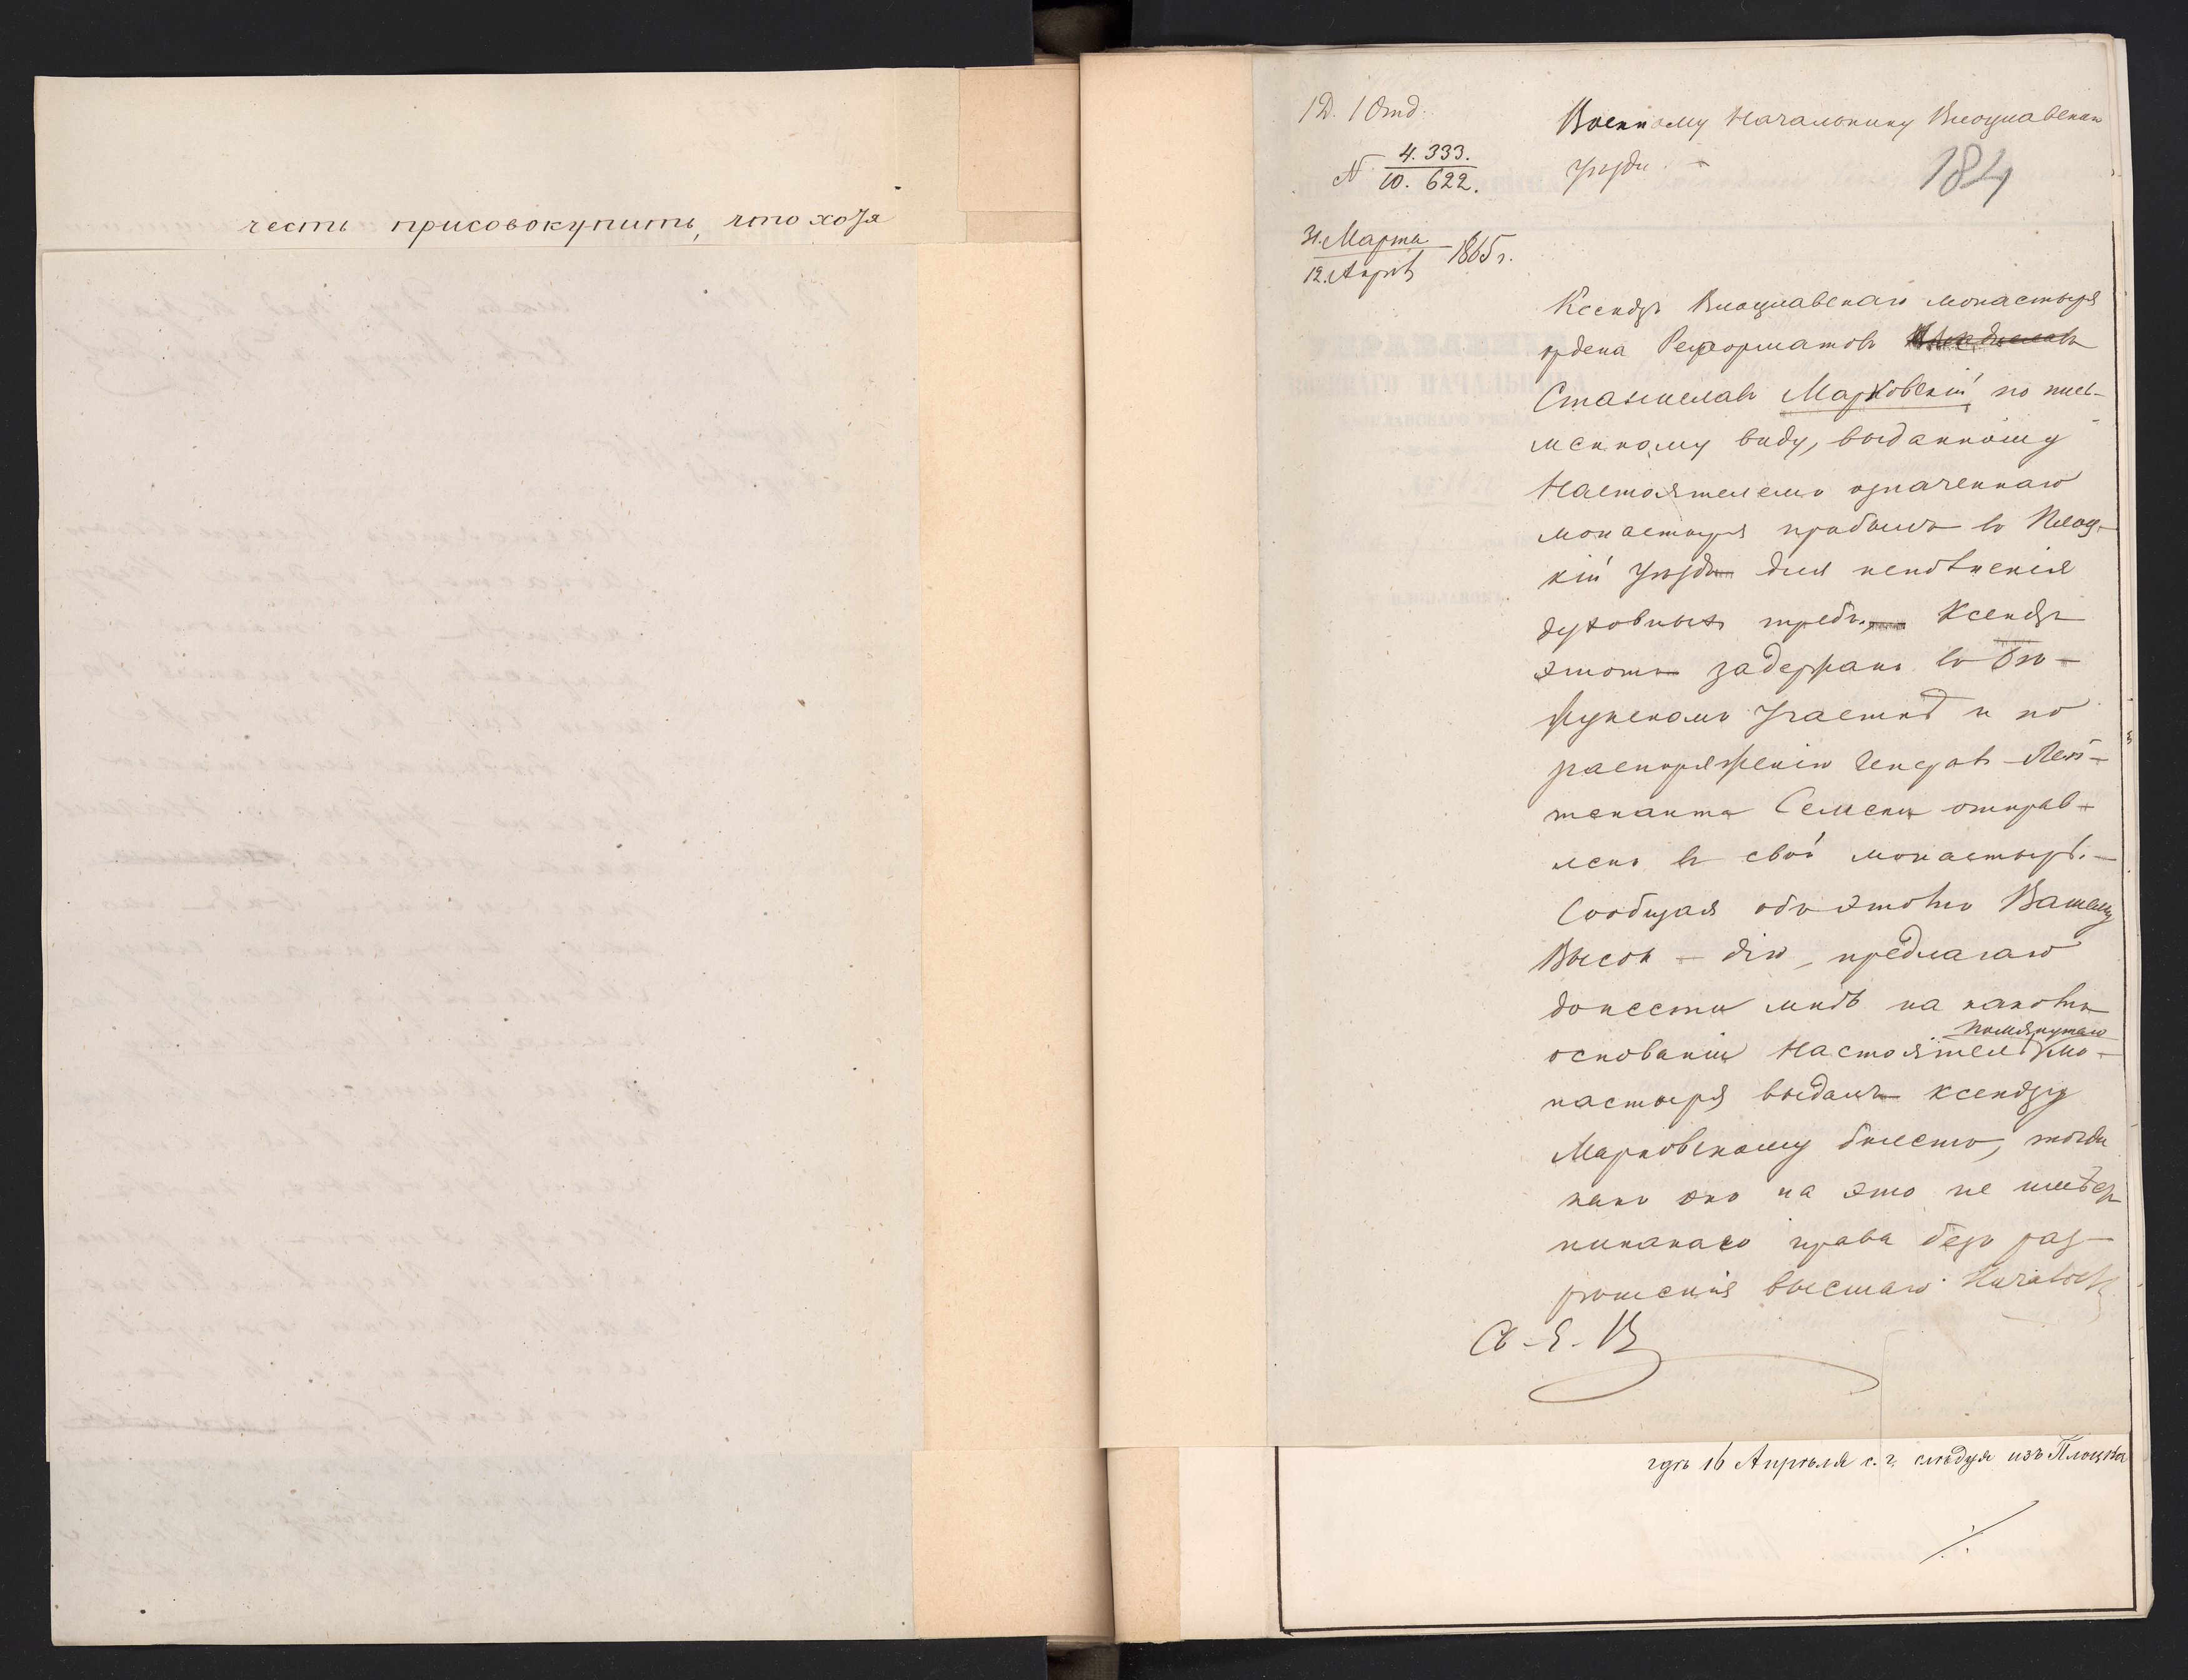 честь присовокупить, что хотя
1 Д. 1 Отд.
№ 4.333. / 10.622.
31. Марта / 12. Апрѣ 1865 г.
Военному Начальнику Влоцлавскаго
уѣзда
184
Ксендзъ Влоцлавскаго монастыря
ордена Реформатовъ
Станиславъ Марковскій по пись-
менному виду, выданному
Настоятелемъ означеннаго
монастыря прибылъ въ Плоц-
кій уѣздъ для исполненія
духовныхъ требъ. Ксендзъ
этотъ задержанъ въ
участкѣ и по
распоряженію Генералъ-Лей-
тенанта Семеки отправ-
ленъ въ свой монастырь.—
Сообщая объ этомъ Вашему
Высок-дію, предлагаю
донести мнѣ на какомъ
помянутаго
основаніи Настоятель мо-
настыря выдалъ ксендзу
Марковскому билетъ, тогда
какъ онъ на это не имѣетъ
никакаго права безъ раз-
рѣшенія высшаго Начальст.
Св. Е. В
гдѣ 16 Апрѣля с. г. слѣдуя изъ Плоцка